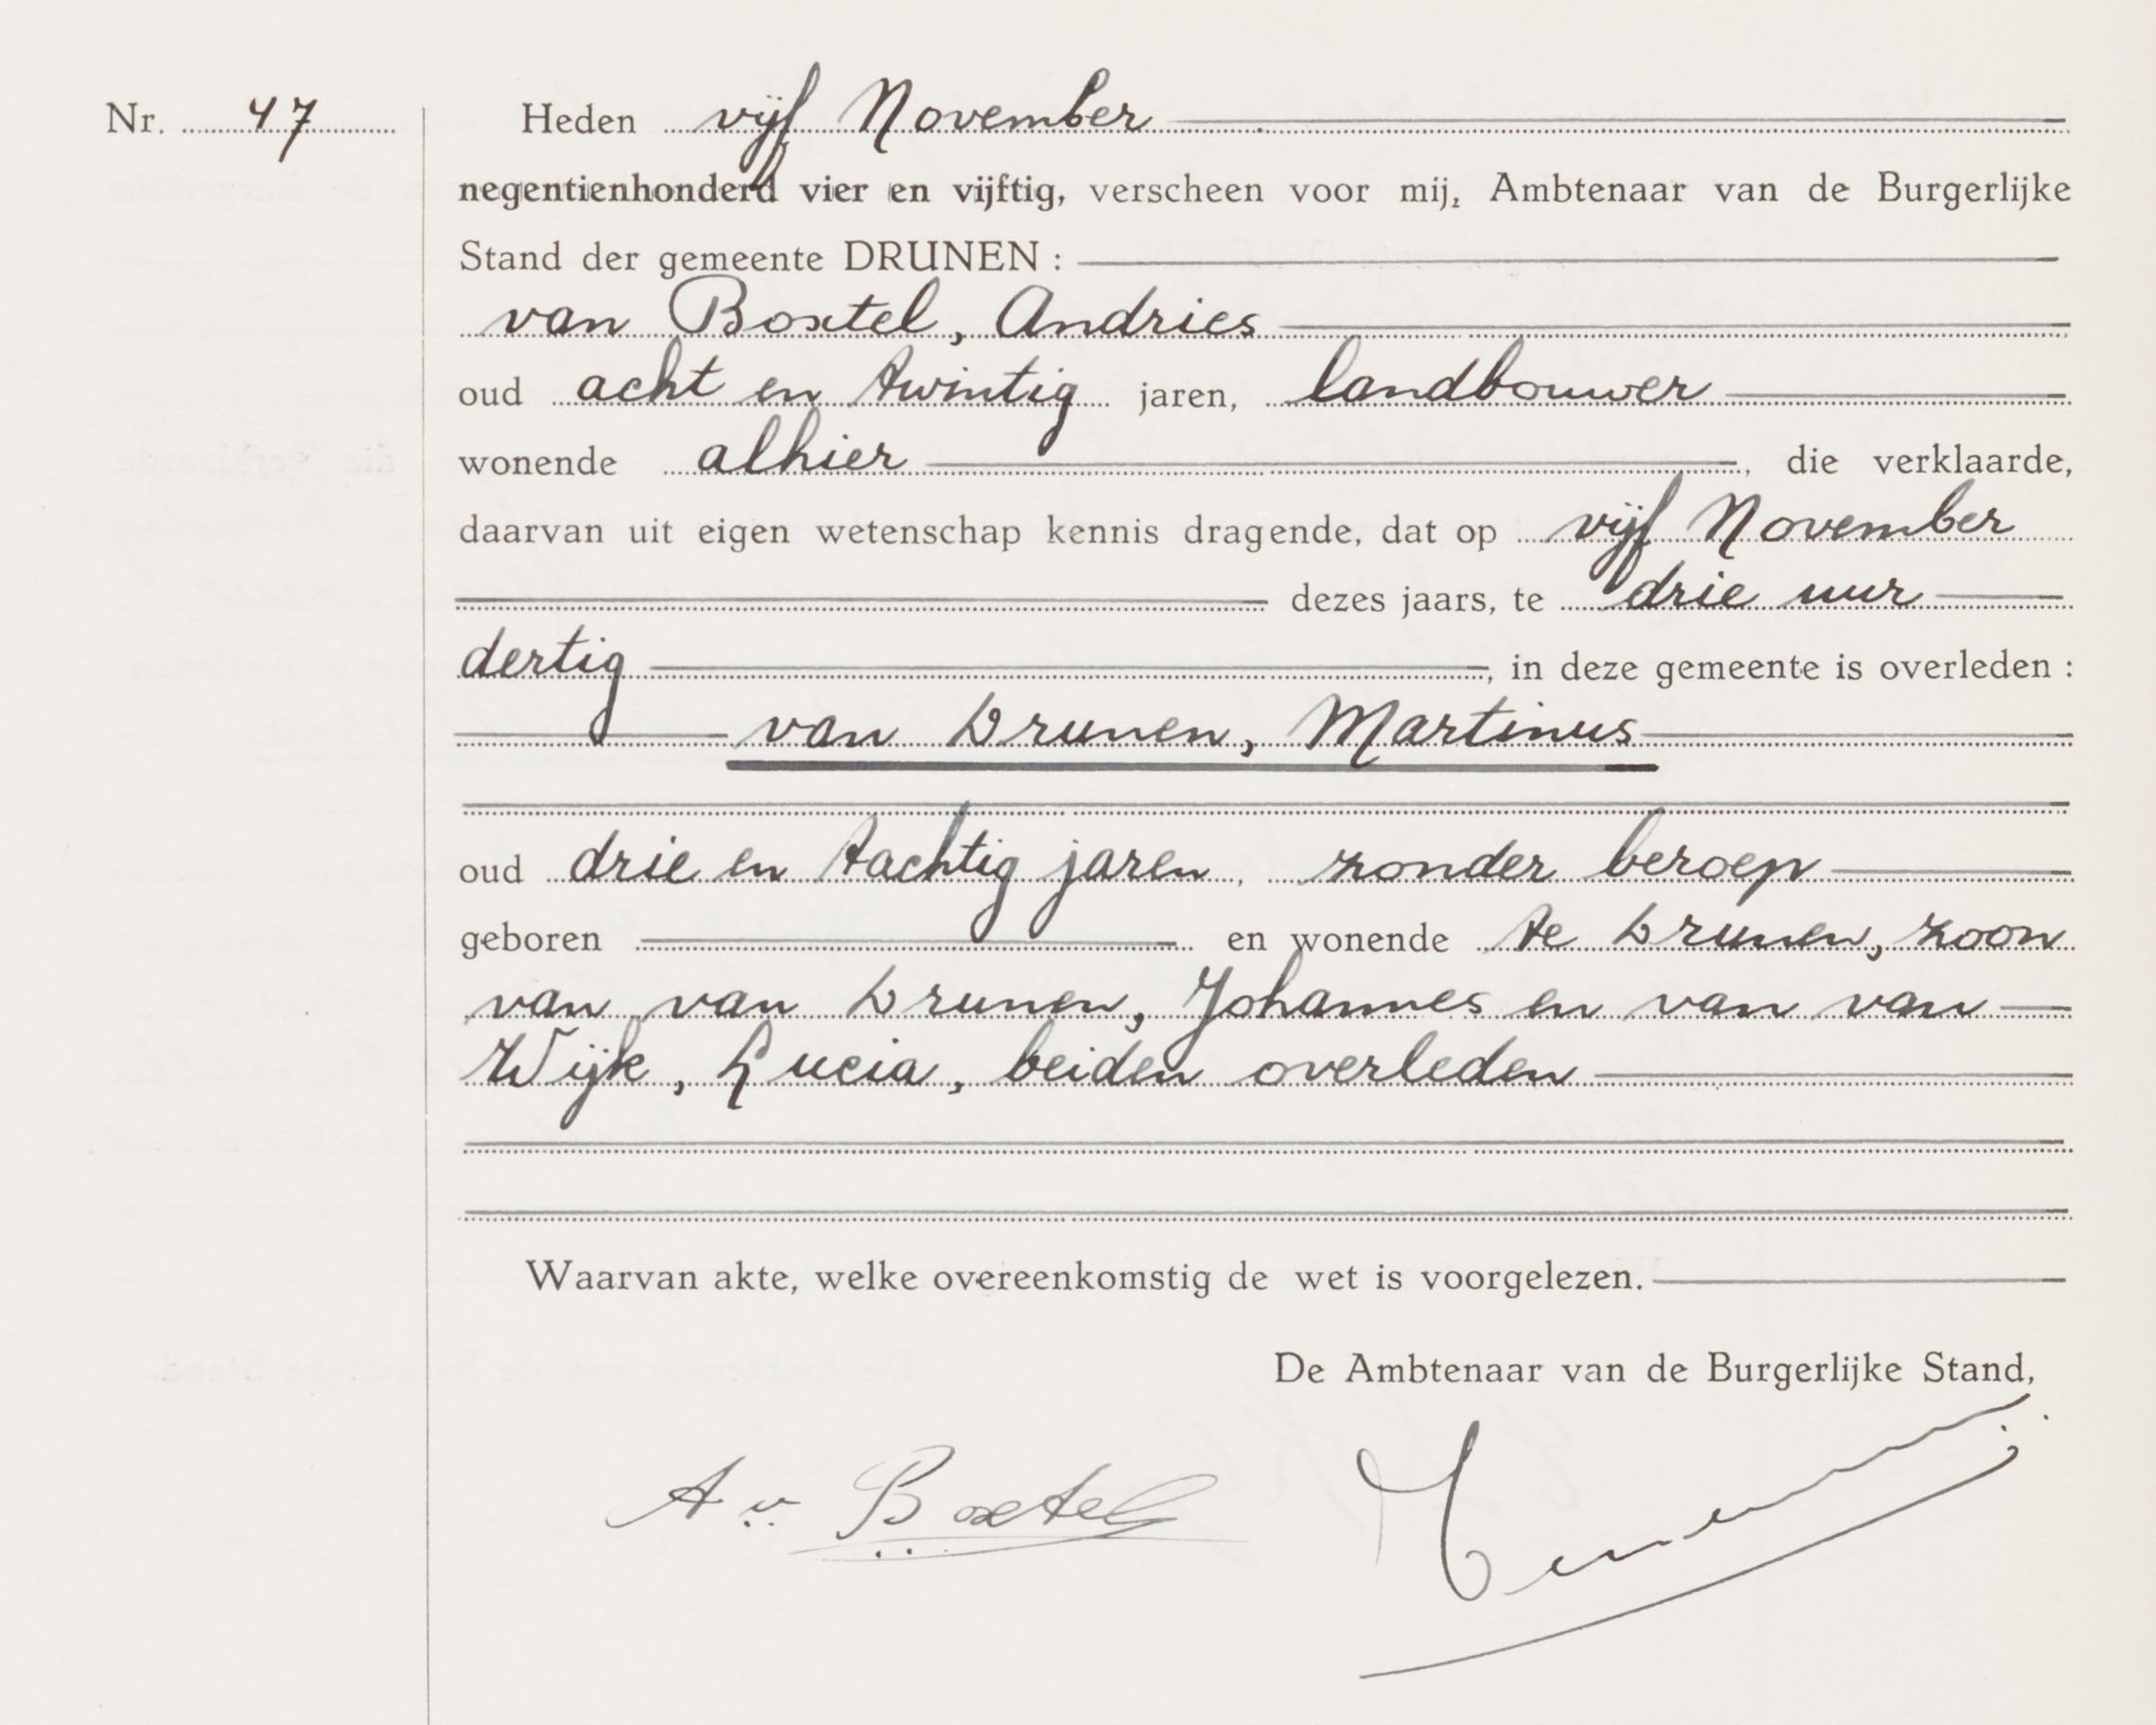 Nr. 47
Heden vijf November
negentienhonderd vier en vijftig, verscheen voor mij, Ambtenaar van de Burgerlijke
Stand der gemeente DRUNEN :
van Boxtel, Andries
oud acht en twintig jaren, landbouwer
wonende alhier, die verklaarde,
daarvan uit eigen wetenschap kennis dragende, dat op vijf November
dezes jaars, te drie uur
dertig, in deze gemeente is overleden :
van Drunen, Martinus
oud drie en tachtig jaren, zonder beroep
geboren en wonende te Drunen, zoon
van van Drunen, Johannes en van van
Wijk, Lucia, beiden overleden
Waarvan akte, welke overeenkomstig de wet is voorgelezen.
De Ambtenaar van de Burgerlijke Stand,
A v. Boxtel